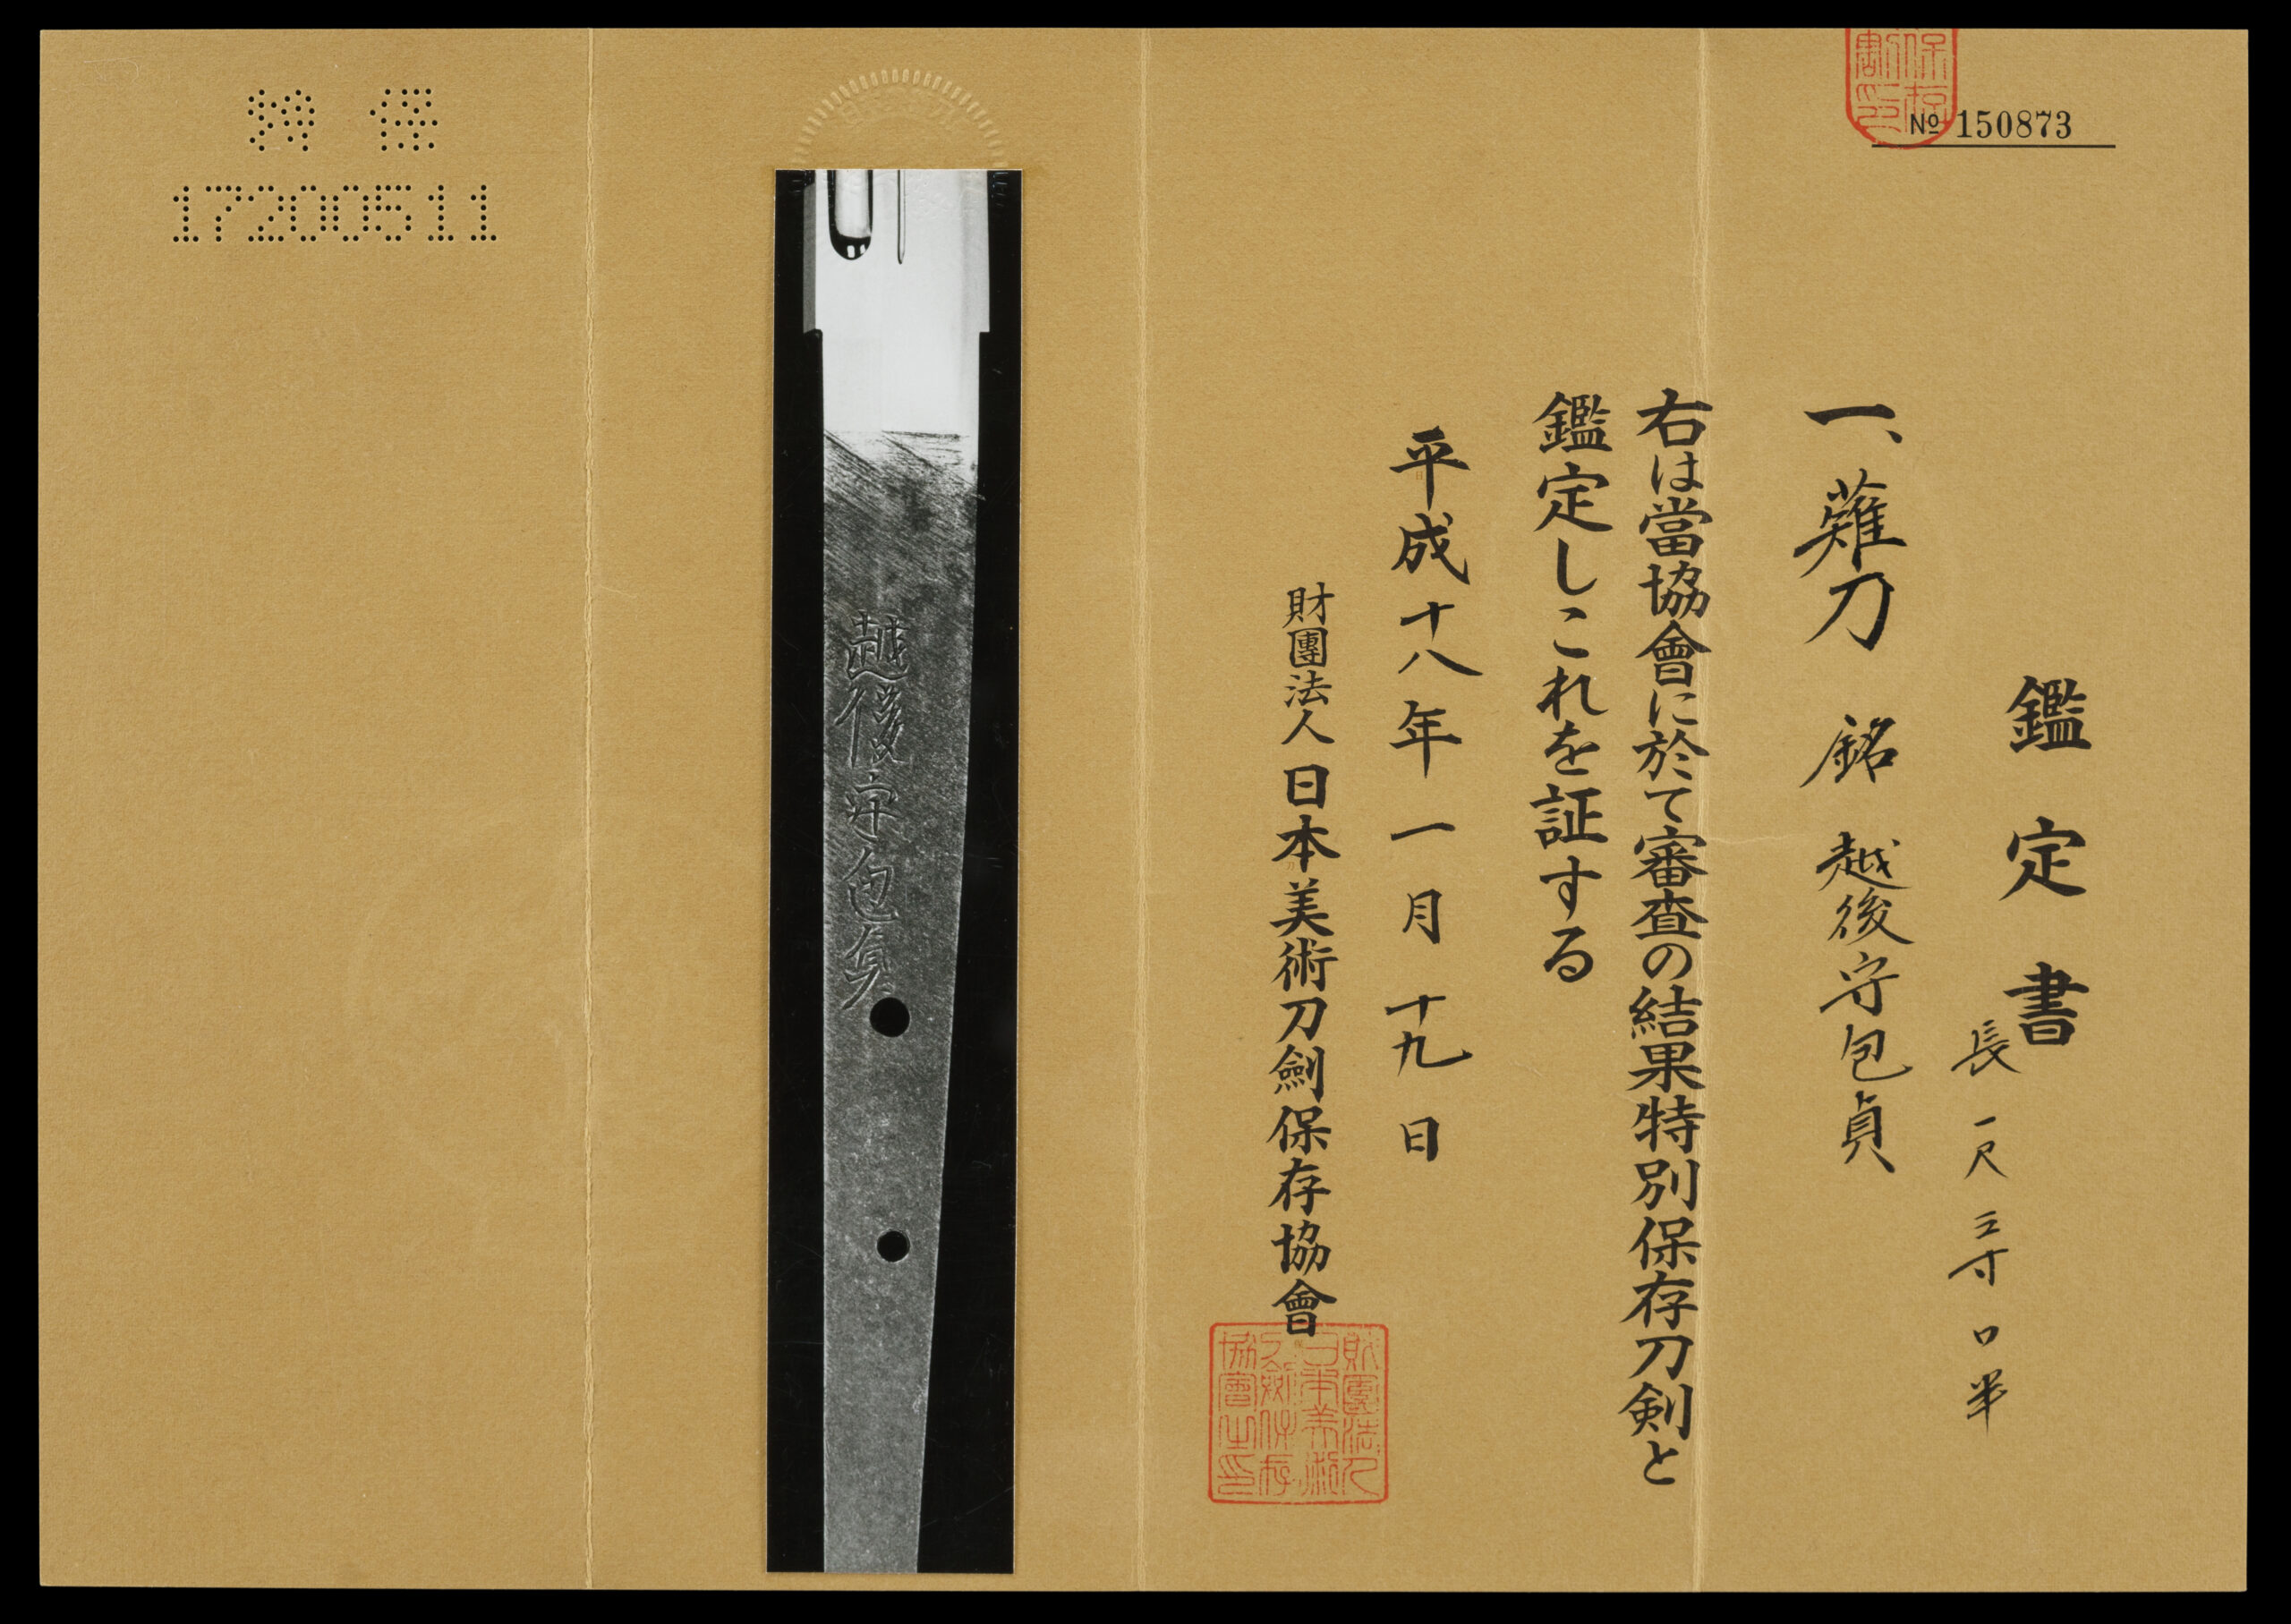 No 150873
鑑定書
長一尺三寸口半
一、薙刀 銘 越後守包貞
右は當協會に於て審査の結果特別保存刀剣と
鑑定しこれを証する
平成十八年一月十九日
財團法人日本美術刀劍保存協會
財團法人
日本美術
刀劍保存
協會之印
越後守包貞
特保
17200511